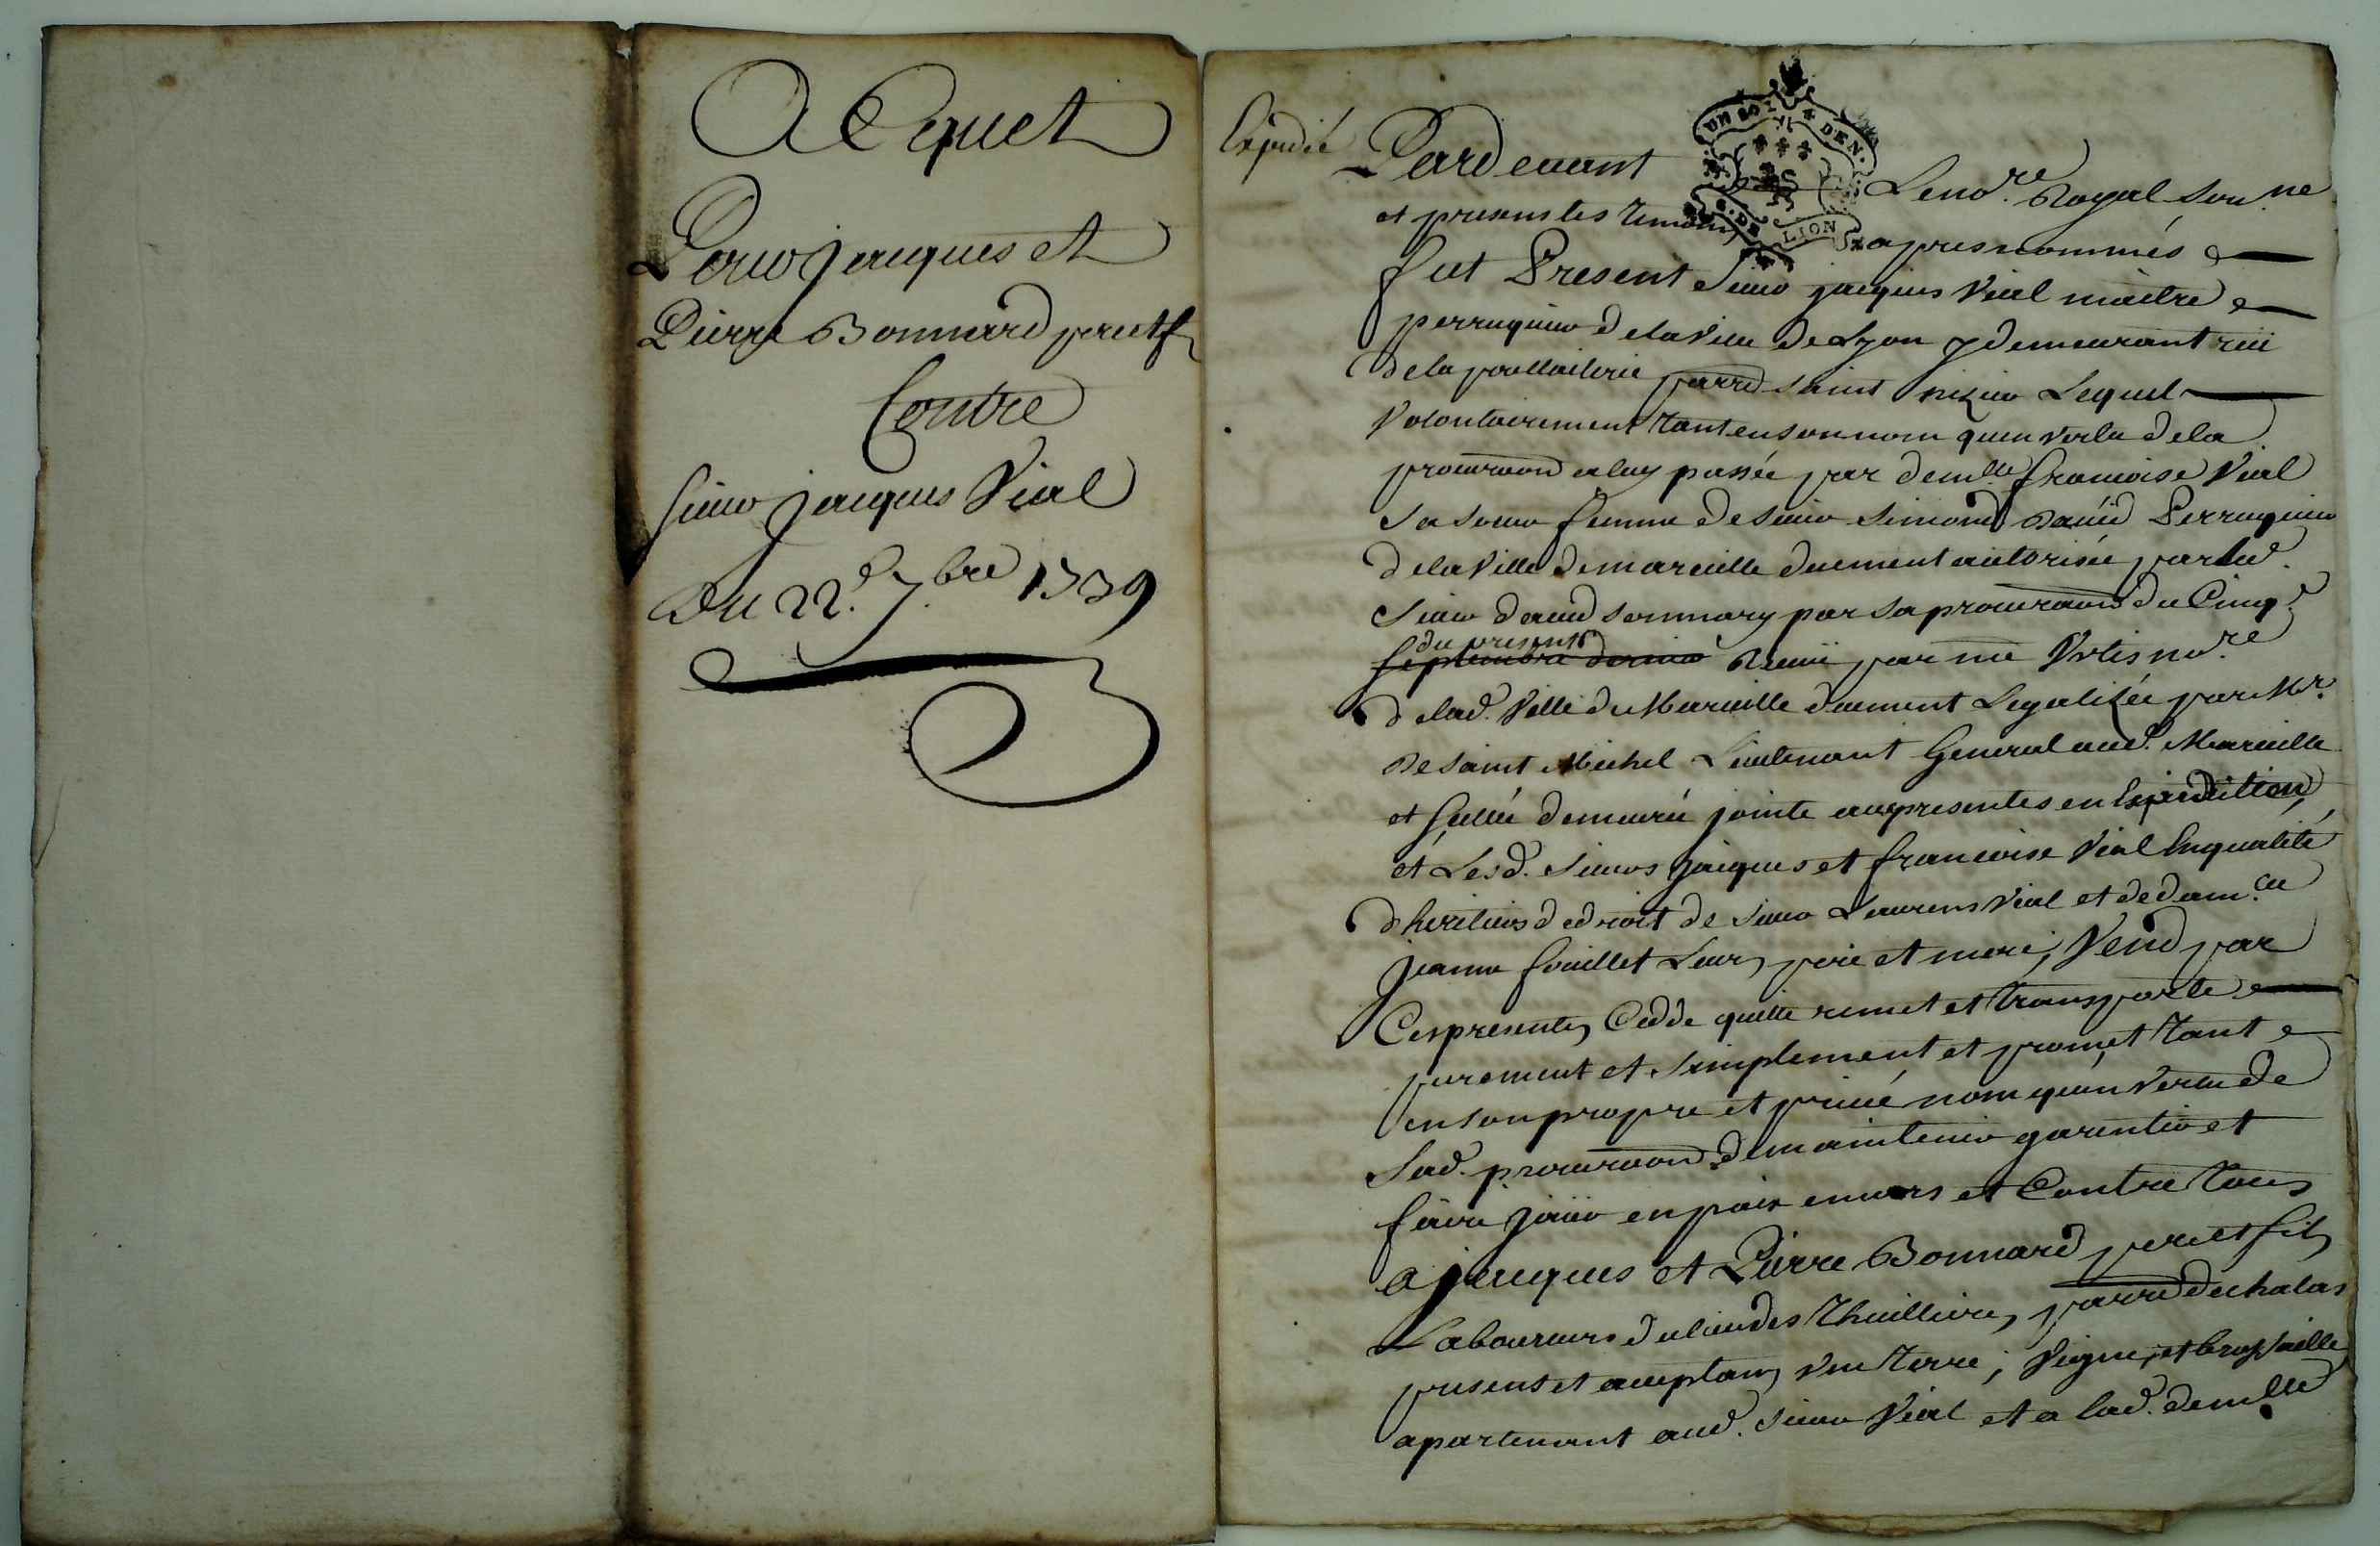 Acquet
Pour jacques et
Pierre Bonnard pere et f.
Contre
sieur jacques Vial
Du 22e. 7.bre 1739
Expedié
Pardevant Le no.re Royal sou.ne
UN SOL DEN.
G. DE LION
et presens les temoins apres nommés
fut Present sieur jacques Vial maitre
perruquier de la ville de Lyon y demeurant rüe
de la poullaillerie parr. saint nizier Lequel
Volontairement tant en son nom quen vertu de la
procuraon a luy passée par dem.lle francoise Vial
sa soeur femme de sieur Simond David Perruquier
de la Ville de marceille duement autorisée par led.
sieur david son mary par sa procuraon du Cinq.e
septembre dernier
du present Receüe par me no.re
de lad. Ville de Marceille duement Legalizée par Mr.
de saint Michel Lieutenant General aud. Marceille
et scellée demeurée jointe aux presentes en Expedition,
et Lesd. sieurs jacques et francoise Vial En qualité
d'heritiers de droit de sieur Laurens Vial et de dam.lle
jeanne fouillet Leurs pere et mere, Vend par
Ces presentes Cedde quitte remet et transporte
purement et simplement et promet tant
en son propre et privé nom quen vertu de
Lad. procuraon de maintenir garentir et
faire joüir en paix envers et Contre tous
a jacques et Pierre Bonnard pere et fils
Laboureurs du lieu des Thuillieres parr. dechalas
presens et acceptans une terre, Vigne, et brossaille
apartenant aud. sieur Vial et a lad. dem.lle